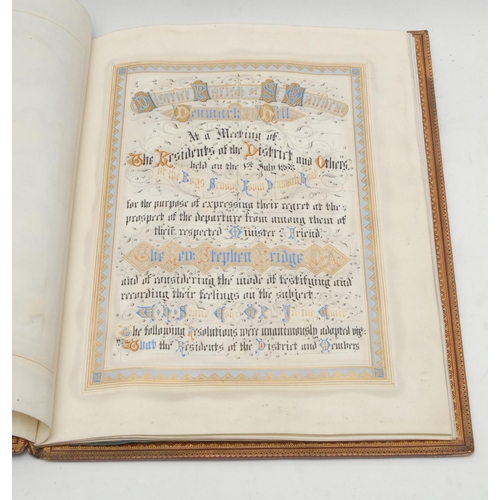 District Parish of St Matthew
Denmark Hill
At a Meeting of
The Residents of the District and Others
held on the July
the Boys School
for the purpose of expressing their regret at the
prospect of the departure from among them of
their respected Minister & Friend
The Rev. Stephen Bridge
and of considering the mode of testifying and
recording their feelings on the subject.
in the Chair
The following Resolutions were unanimously adopted viz:
That the Residents of the District and Members